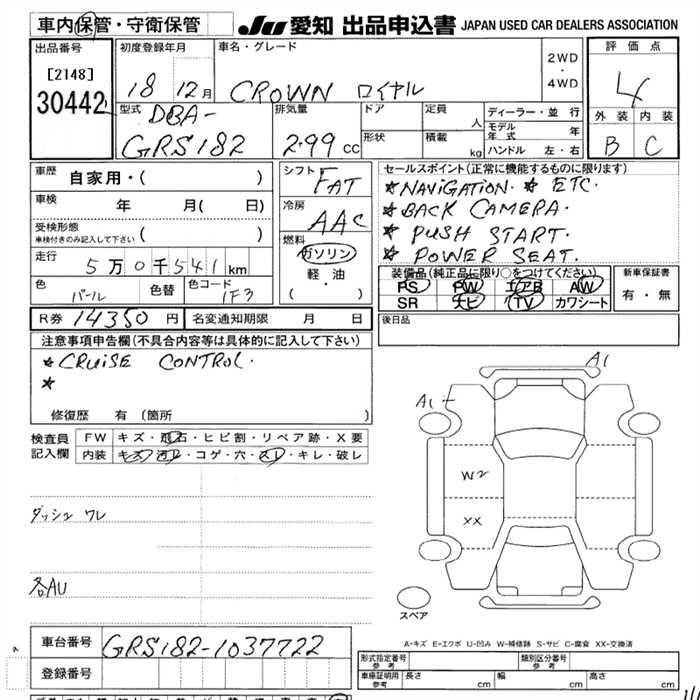 車内保管・守衛保管 JU 愛知 出品申込書 JAPAN USED CAR DEALERS ASSOCIATION
出品番号 初度登録年月 車名・グレード 評価点
[2148] 2WD
30442 18 12月 CROWN ロイヤル 4WD 4
型式 排気量 ドア 定員 ディーラー・並行
DBA- 人 モデル年式 年 外装 内装
GRS182 2.99 cc 形状 積載 kg ハンドル 左・右 B C
車歴 自家用・( ) シフト FAT セールスポイント(正常に機能するものに限ります)
車検 年 月( 日) 冷房 AAC ★NAVIGATION. ★ ETC.
受検形態 ( ) ★BACK CAMERA.
車検付きのみ記入して下さい 燃料 ★ PUSH START.
走行 5万0千541km ガソリン ★ POWER SEAT.
色 パール 色替 色コード 1F3 軽・油 ( ・ )
装備品(純正品に限り○をつけてください) 新車保証書
PS PW エアB AW 有・無
SR ナビ TV カワシート
R券 14350円 名変通知期限 月 日 後日品
注意事項申告欄(不具合内容等は具体的に記入して下さい)
★CRUISE CONTROL.
★
修復歴 有 (箇所 )
A1
A1
検査員記入欄 FW キズ・飛石・ヒビ割・リペア跡・X要
内装 キズ・汚レ・コゲ・穴・スレ・キレ・破レ
W2
XX
ダッシュ ワレ
各AU
スペア
A-キズ E-エクボ U-凹み W-補修跡 S-サビ C-腐食 XX-交換済
車台番号 GRS182-1037722
登録番号
型式指定番号 参考 類別区分番号 参考
車庫証明用 参考 長さ cm 幅 cm 高さ cm